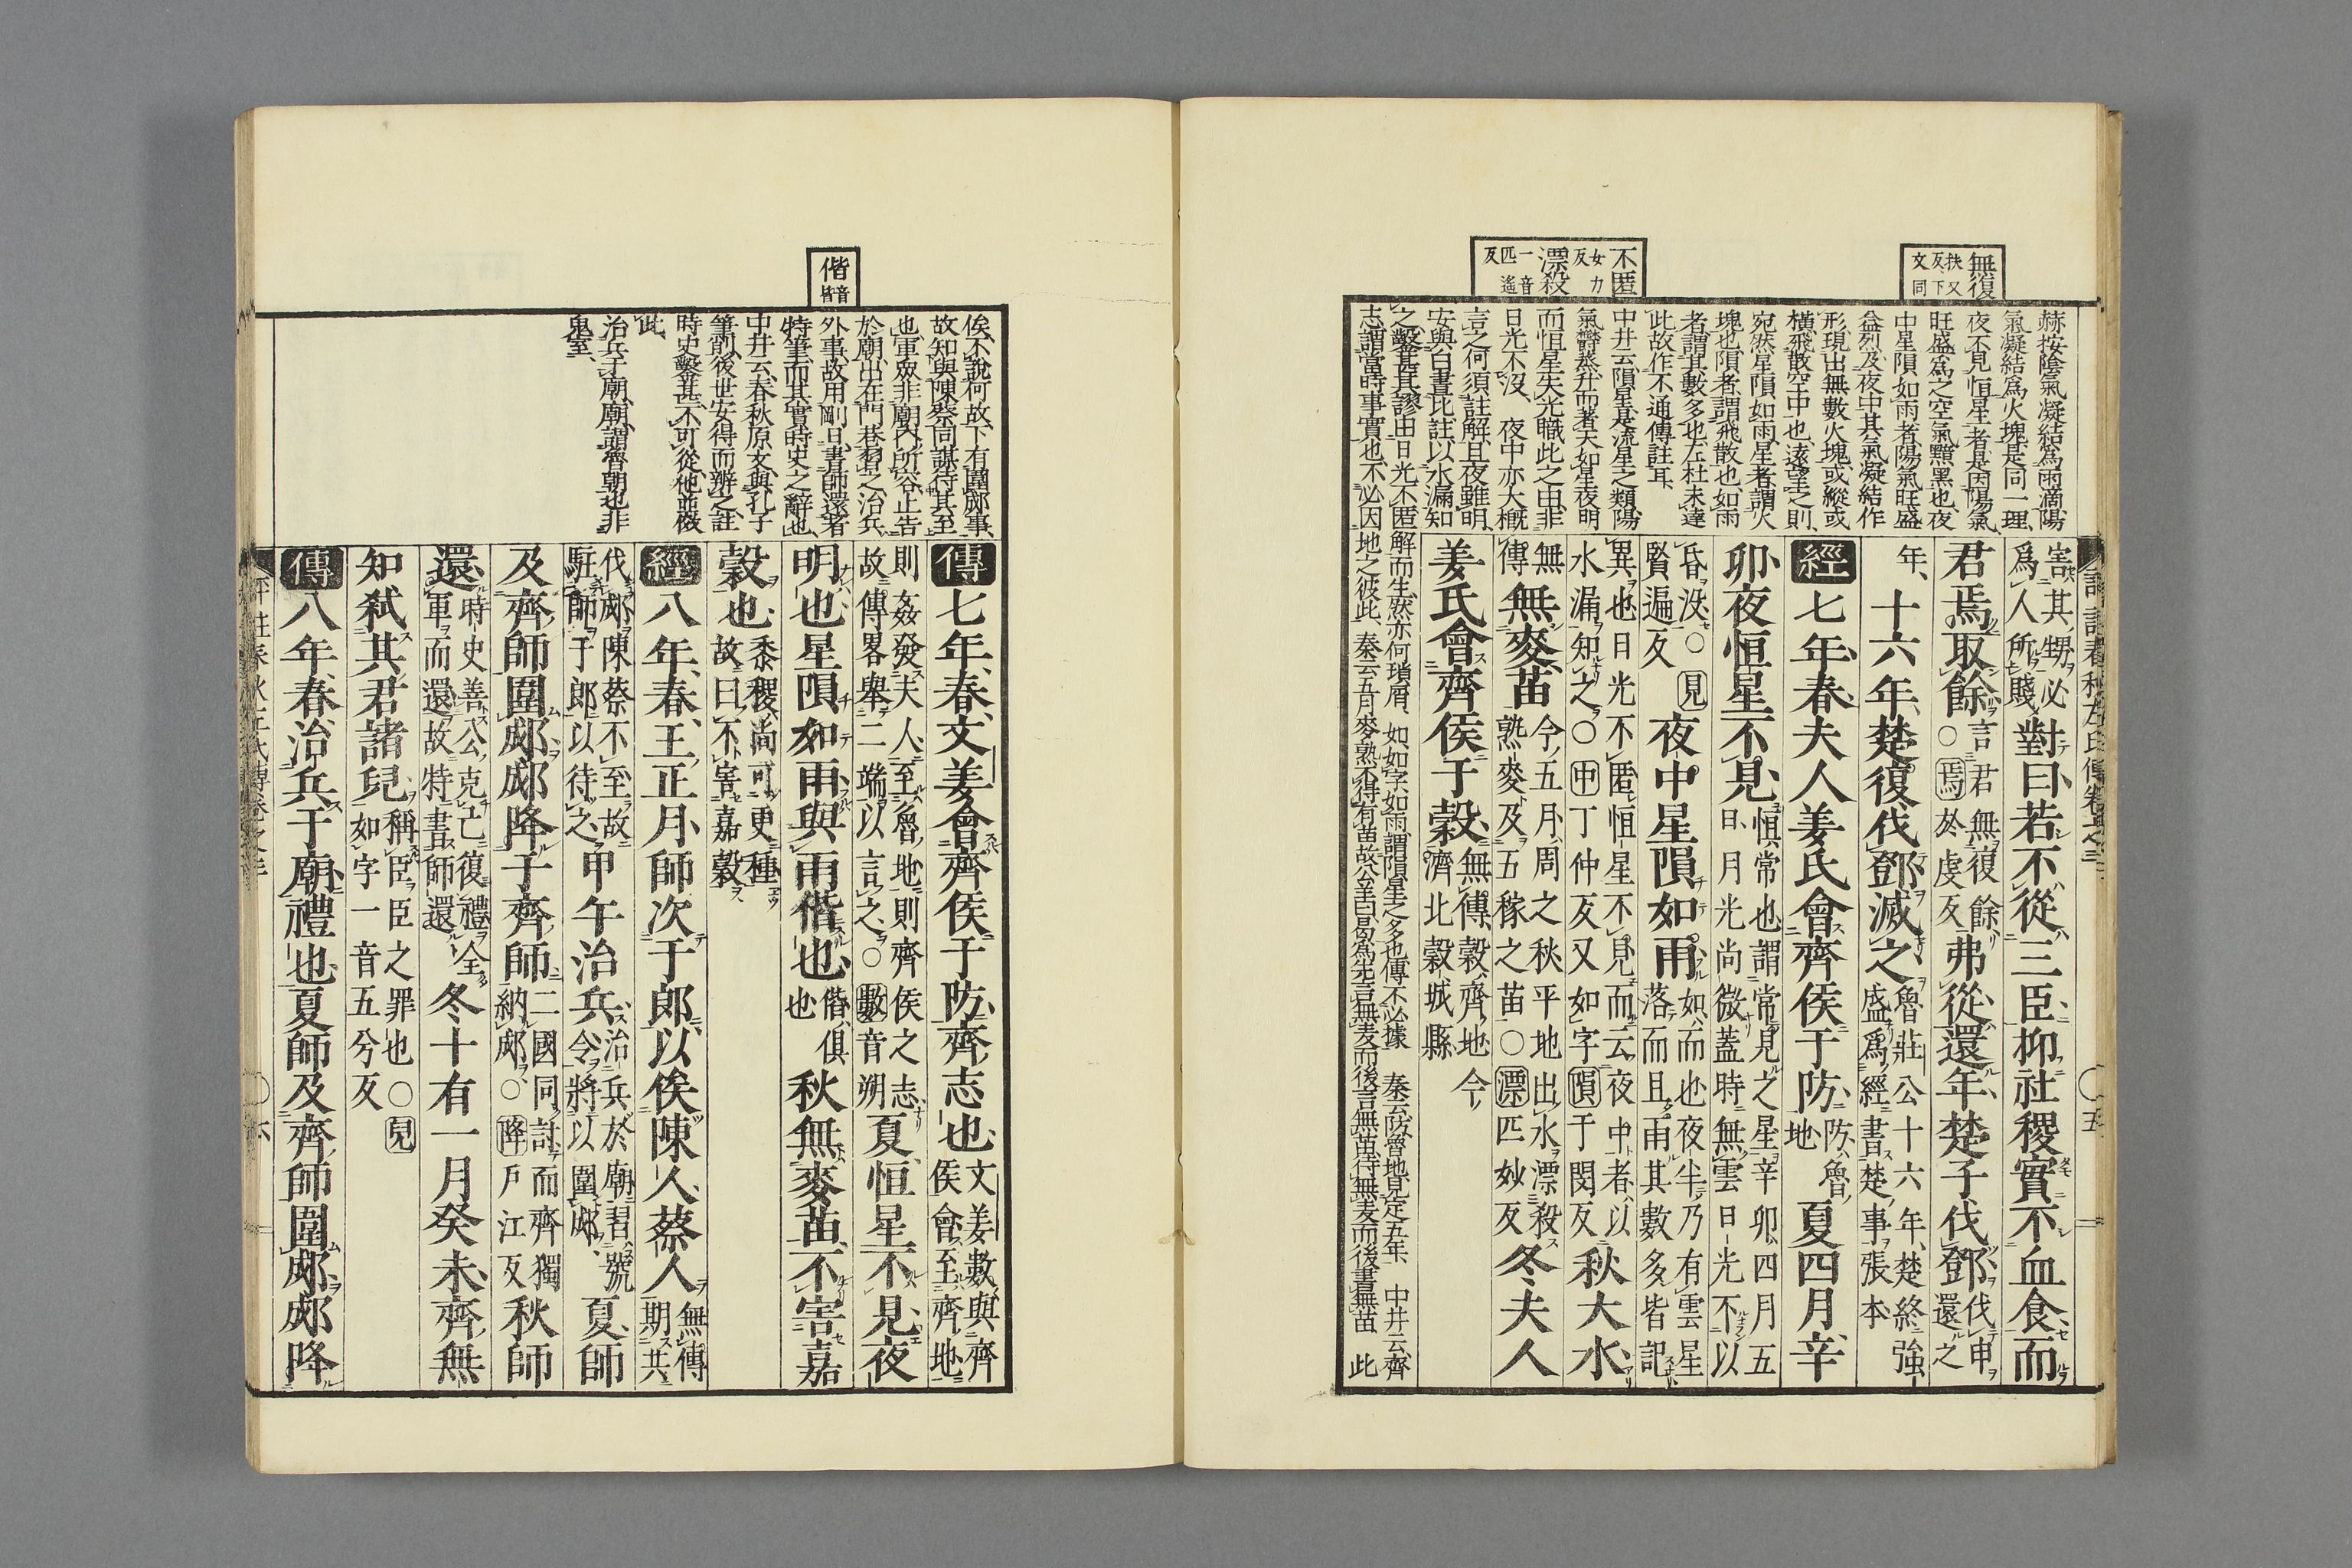 無復
扶又
反下
文同
不匿
女力
反
漂殺
一音
匹遙
反
赫按陰氣凝結爲雨滴陽
氣凝結爲火塊是同一理
夜不見恒星者是因陽氣
旺盛爲之空氣黯黑也夜
中星隕如雨者陽氣旺盛
益烈及夜中其氣凝結作
形現出無數火塊或縱或
橫飛散空中也遠望之則
宛然星隕如雨星者謂火
塊也隕者謂飛散也如雨
者謂其數多也左杜未達
此故作不通傳註耳
中井云隕星是流星之類陽
氣鬱蒸升而著天如星夜明
而恒星失光職此之由非
日光不沒夜中亦大概
言之何須註解且夜雖明
安與白晝比註以水漏知
之鑿甚其謬由日光不匿解而生然亦何瑣屑 如如字如雨謂隕星之多也傳不必據 秦云防魯地見定五年 中井云齊
志謂當時事實也不必因地之彼此 秦云五月麥熟不得有苗故公羊曰曷爲先言無麦而後言無苗待無麦而後書無苗 此
害其甥必
爲人所賤
對曰若不從三臣抑社稷實不血食而
君焉取餘
言君無復餘
○焉於虔反
弗從還年楚子伐鄧
伐申
還之
年
十六年楚復伐鄧滅之
魯莊公十六年楚終強
盛爲經書楚事張本
經七年春夫人姜氏會齊侯于防
防魯
地
夏四月辛
卯夜恒星不見
恒常也謂常見之星辛卯四月五
日月光尚微蓋時無雲日光不以
昏沒○見
賢遍反
夜中星隕如雨
如而也夜半乃有雲星
落而且雨其數多皆記
異也日光不匿恒星不見而云夜中者以
水漏知之○中丁仲反又如字隕于閔反
秋大水
無
傳
無麥苗
今五月周之秋平地出水漂殺
熟麥及五稼之苗○漂匹妙反
冬夫人
姜氏會齊侯于穀
無傳穀齊地今
濟北穀城縣
五
偕
音皆
俟不說何故下有圍郕事
故知與陳蔡同謀待其至
也軍衆非廟內所容止告
於廟出在門巷習之治兵
外事故用剛日書師還者
特筆而其實時史之辭也
中井云春秋原文與孔子
筆削後世安得而辨之註
時史鑿甚不可從他並倣
此
治兵于廟廟謂齊朝也非
鬼室
傳七年春文姜會齊侯于防齊志也
文姜數與齊
侯會至齊地
則姦發夫人至魯地則齊侯之志
故傳畧舉二端以言之○數音朔
夏恒星不見夜
明也星隕如雨與雨偕也
偕俱
也
秋無麥苗不害嘉
穀也
黍稷尚可更種
故曰不害嘉穀
經八年春王正月師次于郎以俟陳人蔡人
無傳
期共
伐郕陳蔡不至故
駐師于郎以待之
甲午治兵
治兵於廟習號
令將以圍郕
夏師
及齊師圍郕郕降于齊師
二國同討而齊獨
納郕○降戶江反
秋師
還
時史善公克己復禮全
軍而還故特書師還
冬十有一月癸未齊無
知弒其君諸兒
稱臣臣之罪也○兒
如字一音五兮反
傳八年春治兵于廟禮也夏師及齊師圍郕郕降